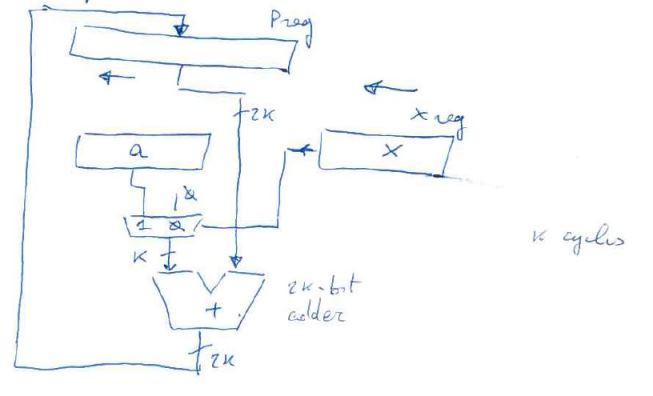 Preg
2K
x reg
a
X
1 0
K
k cycles
2k-bit
adder
+
2K